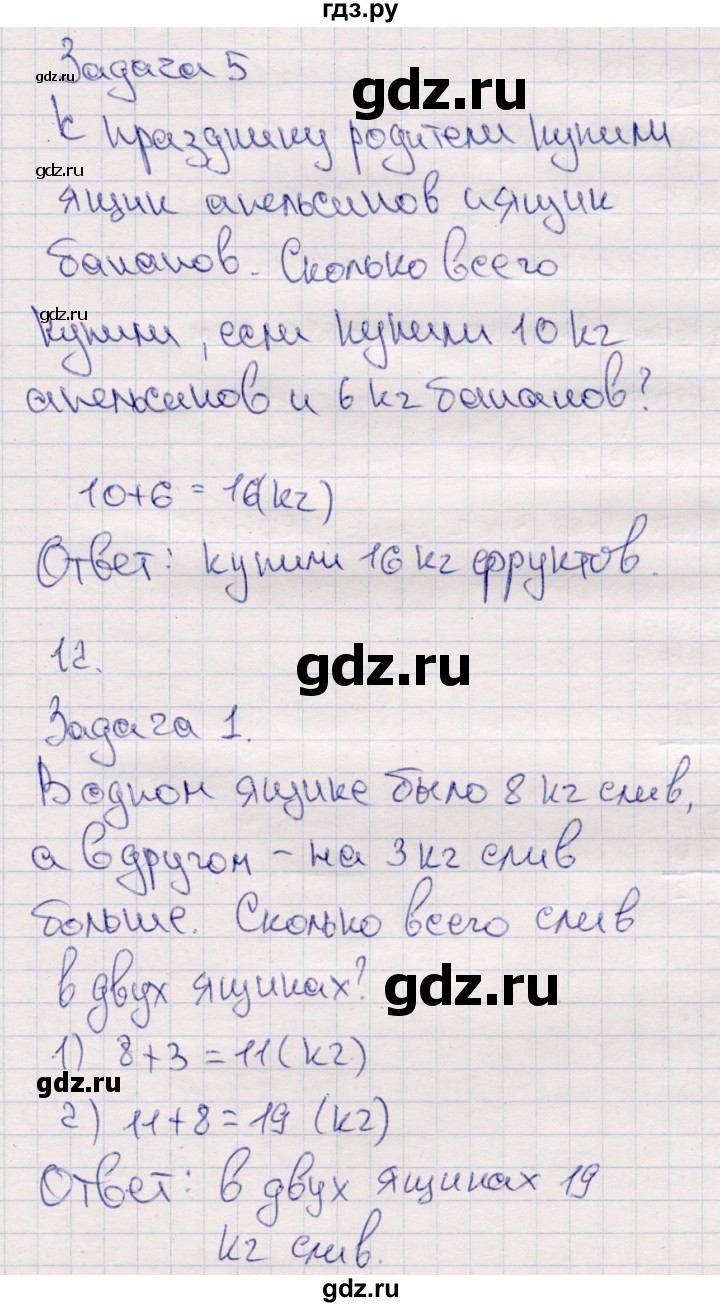 гдз.ру
Задача 5
gdz.ru
gdz.ru
К празднику родители купили
gdz.ru
ящик апельсинов и ящик
бананов. Сколько всего
gdz.ru
купили, если купили 10 кг
апельсинов и 6 кг бананов?
10+6 = 16(кг)
Ответ: купили 16 кг фруктов.
12.
gdz.ru
Задача 1.
В одном ящике было 8 кг слив,
а в другом – на 3 кг слив
больше. Сколько всего слив
в двух ящиках?
gdz.ru
1) 8+3=11(кг)
gdz.ru
2) 11+8=19 (кг)
Ответ: в двух ящиках 19
кг слив.
gdz.ru